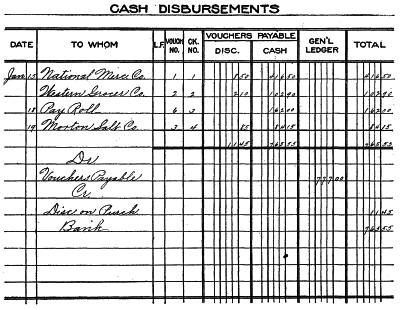 CASH DISBURSEMENTS
DATE TO WHOM L.F. VOUCH NO. CK. NO. VOUCHERS PAYABLE DISC. CASH GEN'L LEDGER TOTAL
Jan 15 National Merc. Co. 1 1 8 50 416 50 416 50
Western Grocer Co. 2 2 2 10 102 90 102 90
18 Pay Roll 6 3 162 00 162 00
19 Morton Salt Co. 3 4 85 84 15 84 15
11 45 765 55 765 55
Dr
Vouchers Payable 777 00
Cr.
Disc on Purch 11 45
Bank 765 55